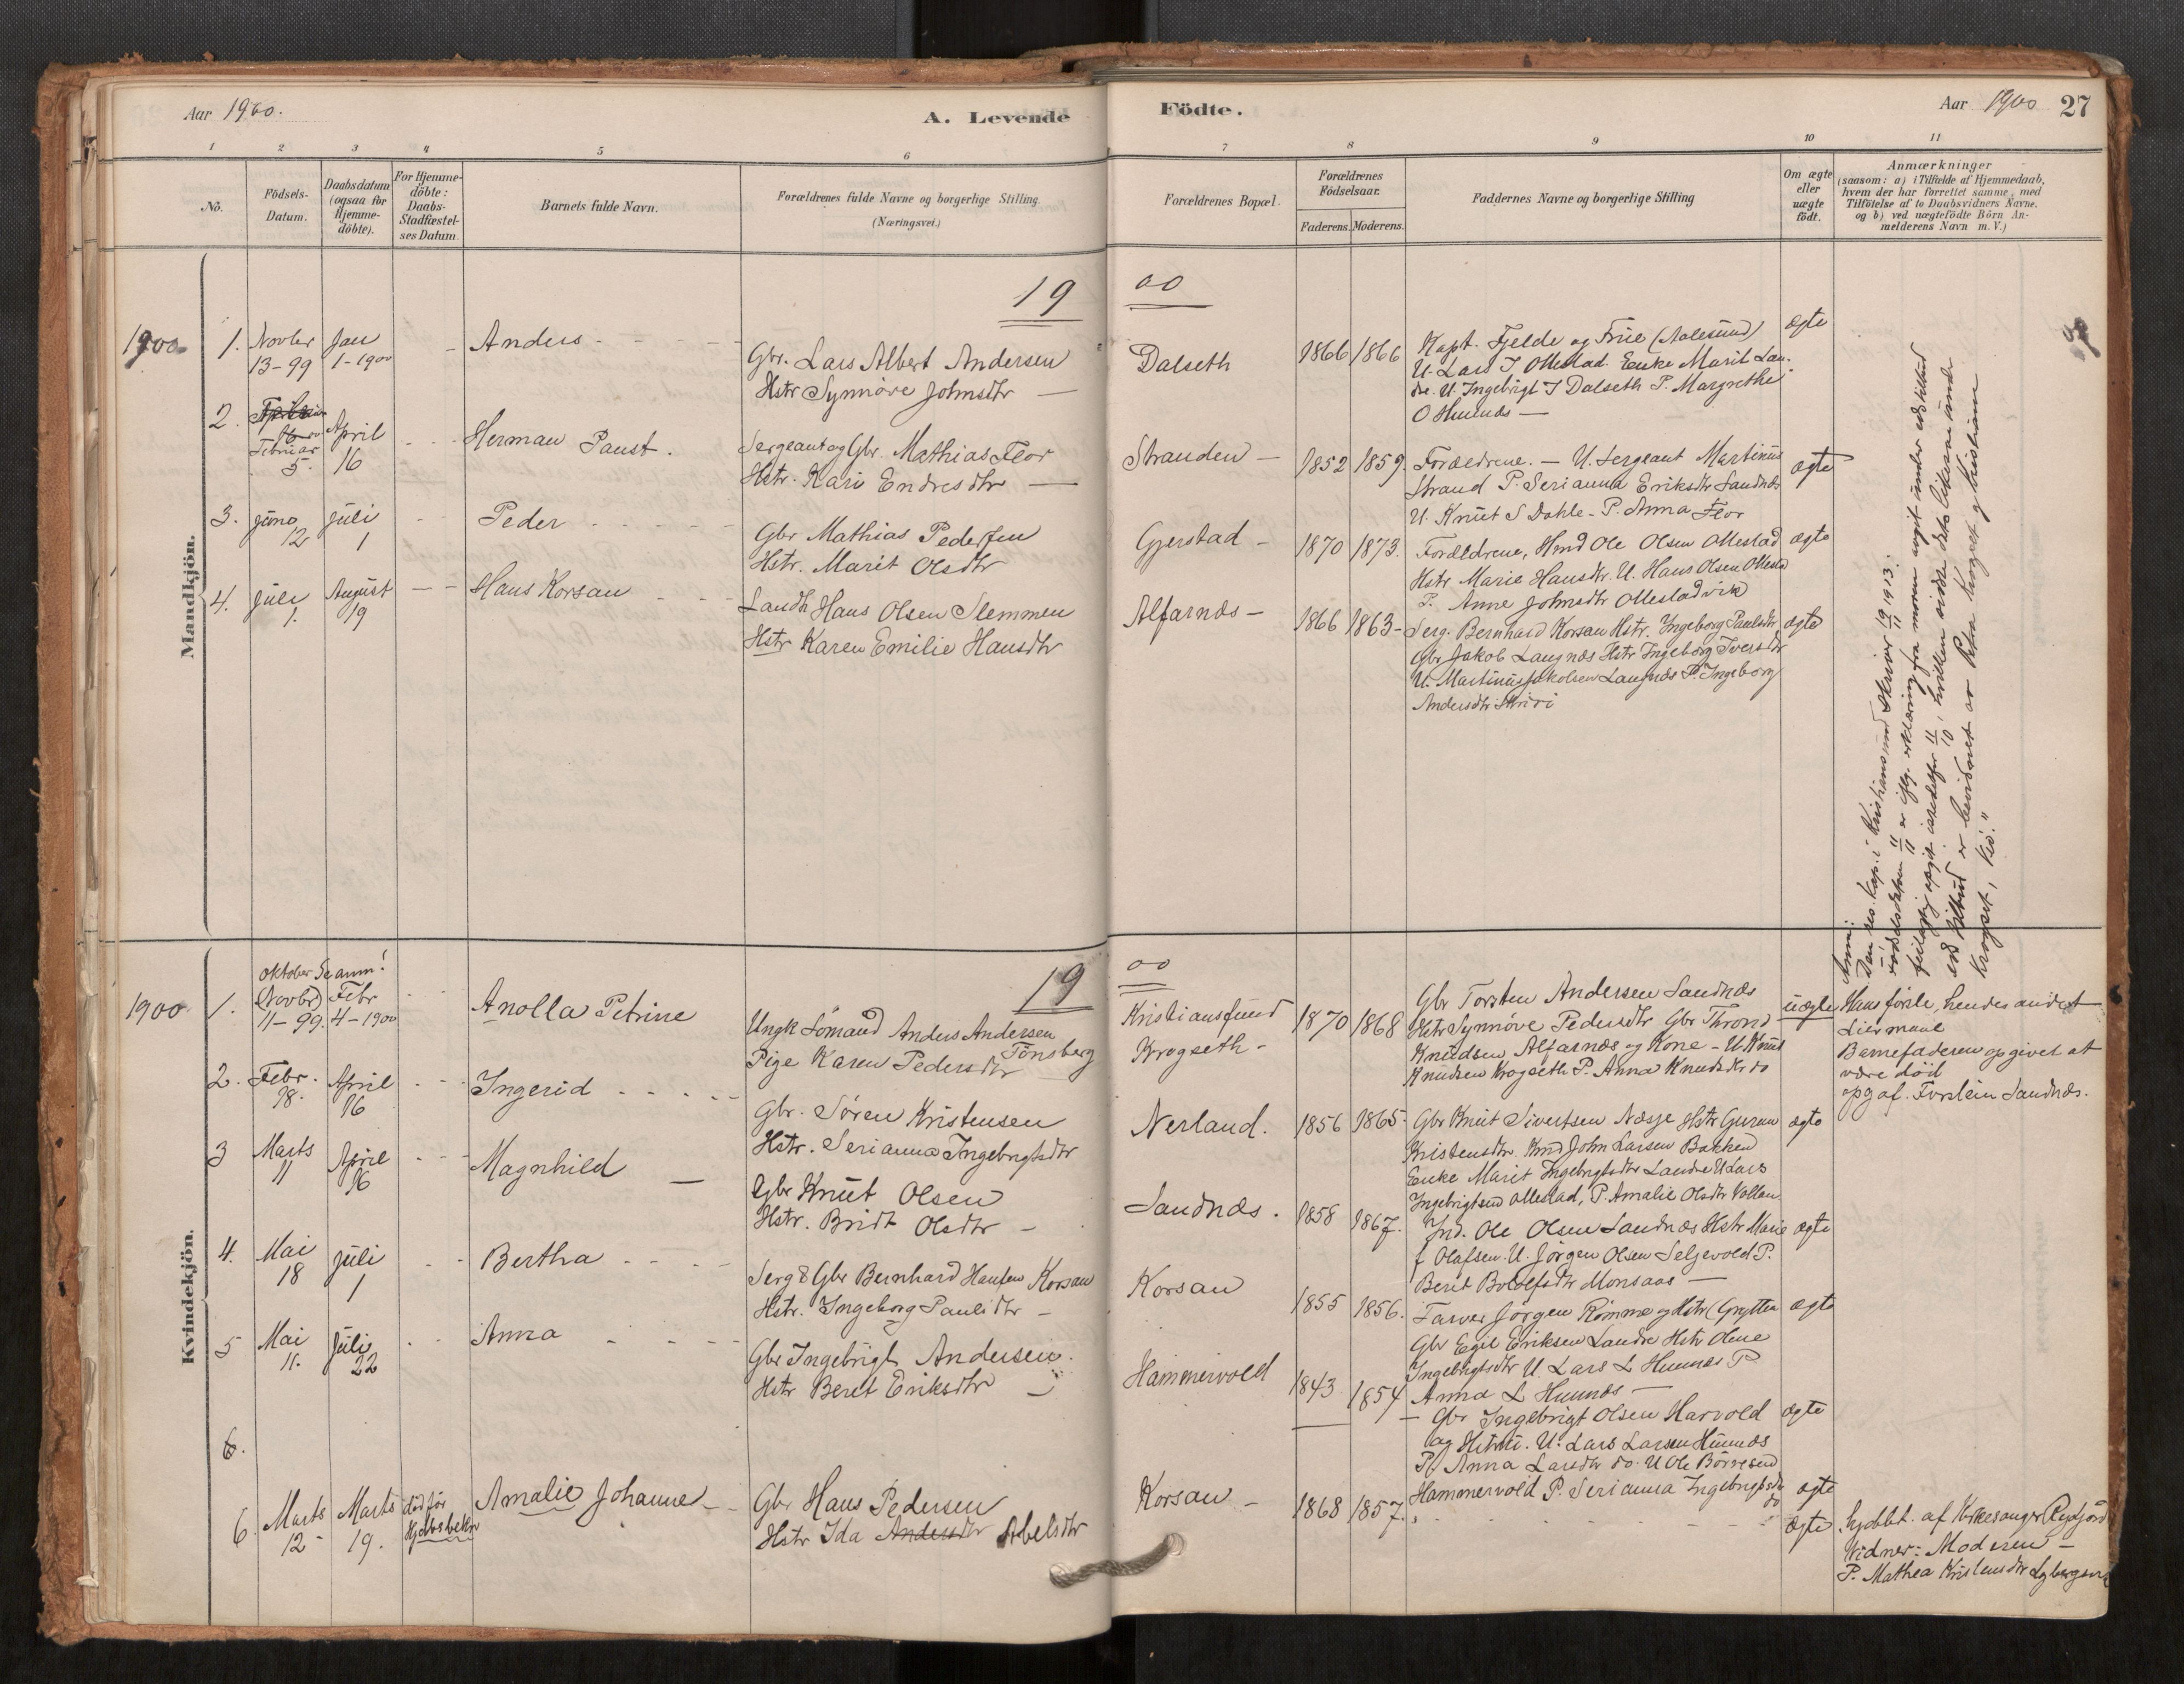 Aar 1900.
A. Levende
Födte.
Aar 1900
27
1 2 3 4 5 6 7 8 9 10 11
No.
Födsels-
Datum.
Daabsdatum
(ogsaa for
Hjemme-
döbte).
For Hjemme-
döbte:
Daabs-
Stadfæstel-
ses Datum.
Barnets fulde Navn.
Forældrenes fulde Navne og borgerlige Stilling.
(Næringsvei.)
Forældrenes Bopæl.
Forældrenes
Födselsaar.
Faderens. Moderens.
Faddernes Navne og borgerlige Stilling
Om ægte
eller
uægte
födt.
Anmærkninger
(saasom: a) i Tilfælde af Hjemmedaab,
hvem der har forrettet samme, med
Tilföielse af to Daabsvidners Navne.
og b) ved uægtefödte Börn An-
melderens Navn m. V.)
19 00
Mandkjön.
1900
1. Novbr 13-99
Jan 1-1900
Anders
Gbr. Lars Albert Andersen
Hstr Synnöve Johnsdtr
Dalseth
1866 1866
Kapt. Fjelde og Frue (Aalesund)
U. Lars J Ollestad. Enke Marit Lan-
de. U. Ingebrigt J Dalseth P. Margrethe
O Hunnes
ægte
2. Februar 5.
April 16
Herman Paust.
Sergeant og Gbr. Mathias Flor
Hstr. Kari Endresdtr
Stranden
1852 1859.
Forældrene. — U. Sergeant Martinus
Strand P. Serianna Eriksdtr Sandnes
U. Knut S Dahle - P. Anna Flor
ægte
3. Juno 12
Juli 1
Peder
Gbr Mathias Pedersen
Hstr. Marit Olsdtr
Gjerstad
1870 1873.
Forældrene, Hmd Ole Olsen Ollestad
Hstr Marie Hansdtr. U. Hans Olsen Ollesta
P. Anne Johnsdtr Ollestadvik
ægte
4. Juli 1.
August 19
Hans Korsan
Landh Hans Olsen Slemmen
Hstr Karen Emilie Hansdtr
Alfarnæs
1866 1863
Serg. Bernhard Korsan Hstr. Ingeborg Paulsdtr
Gbr Jakob Langnæs Hstr Ingeborg Iversdtr
U. Martinus Jakobsen Langnæs P. Ingeborg
Andersdtr
ægte
Anm:
Den res. kap. i Kristiansund skriver 19/11 1913:
födselsdatum 11/11 er iflg. erklæring fra moren avgit under edstilbud
feilagtig opgit istedetfor 11/10, hvilken sidste dato likesaa under
edstilbud er bevidnet av Petra Krogset og Kristiane
Krogset, ks."
Kvindekjön.
19 00
1900
1. Oktober Se anm!
(Novbr) 11-99.
Febr 4-1900
Anolla Petrine
Ungk Sömand Anders Andersen
Tönsberg
Pige Karen Pedersdtr
Kristiansund
Krogseth
1870 1868
Gbr Torsten Andersen Sandnæs
Hstr Synnöve Pedersdtr Gbr Thrond
Knudsen Alfarnæs og Kone - U. Knut
Knudsen Krogseth P. Anna Knudsdtr do
uægte
Hans förste, hendes andet
Leiermaal
Barnefaderen opgivet at
være död
opg af. Torstein Sandnæs.
2. Febr. 18.
April 16
Ingerid
Gbr. Sören Kristensen
Hstr. Serianna Ingebrigtsdtr
Nerland.
1856 1865
Gbr Knut Sivertsen Næsje Hstr Gurun
Kristensdtr. Hmd John Larsen Bakken
Enke Marit Ingebrigtsdtr Lande U Lars
Ingebrigtsen Ollestad, P. Amalie Olsdtr Vollan
ægte
3 Marts 11
April 16
Magnhild
Gbr Knut Olsen
Hstr. Bridt Olsdtr
Sandnæs.
1858 1867.
Ind. Ole Olsen Sandnæs Hstr Marie
f Olafsen. U. Jörgen Olsen Seljevold P.
Berit Botolfsdtr Monsaas
ægte
4. Mai 18
Juli 1
Bertha
Serg & Gbr Bernhard Hansen Korsan
Hstr. Ingeborg Paulsdtr
Korsan
1855 1856.
Farver Jörgen Römme og Hstr (Grytten
Gbr Egil Eriksen Landre Hstr Olene
Ingebrigtsdtr U. Lars L Hunnæs P.
Anna L Hunnæs
ægte
5 Mai 11.
Juli 22
Anna
Gbr Ingebrigt Andersen.
Hstr Beret Eriksdtr
Hammervold
1843 1854
Gbr Ingebrigt Olsen Harvold
og Hstru. U. Lars Larsen Hunnæs
P. Anna Larsdtr do. U Ole Börresen
Hammervold P. Serianna Ingebrigtsdtr
do
ægte
6.
ægte
6. Marts 12
Marts 19.
död för
Hjdbsbekr
Amalie Johanne
Gbr Hans Pedersen
Hstr Ida Andersdtr Abelsdtr
Korsan
1868 1857.
ægte
hjdöbt. af Kirkesanger Rydjord
Vidner: Moderen
P. Mathea Kristensdtr